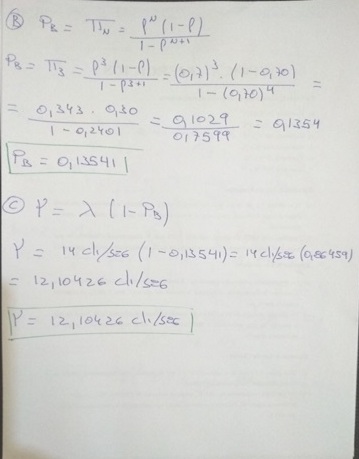 Ⓑ P_B = Π_N = ρ^N (1-ρ) / 1-ρ^N+1
P_B = Π_3 = ρ^3 (1-ρ) / 1-ρ^3+1 = (0,7)^3 · (1-0,70) / 1-(0,70)^4 =
= 0,343 · 0,30 / 1-0,2401 = 0,1029 / 0,7599 = 0,1354
P_B = 0,13541
Ⓒ γ = λ (1-P_B)
γ = 14 cli/seg (1-0,13541) = 14 cli/seg (0,86459)
= 12,10426 cli/seg
γ = 12,10426 cli/seg